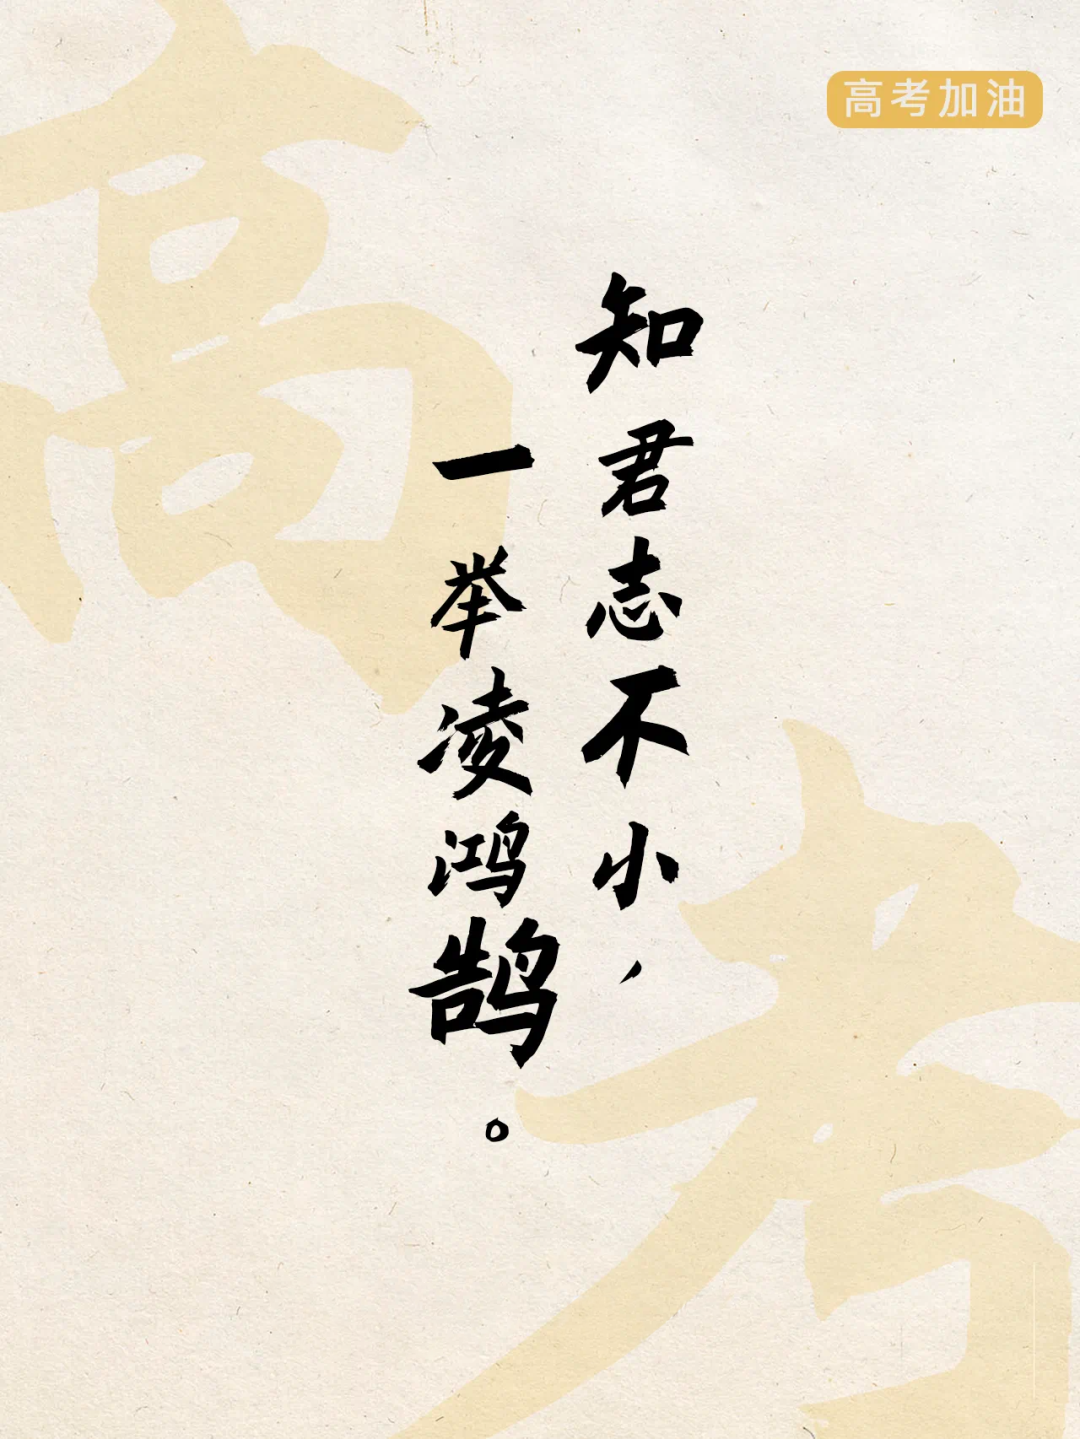 高考加油
知君志不小，
一举凌鸿鹄。
高
考